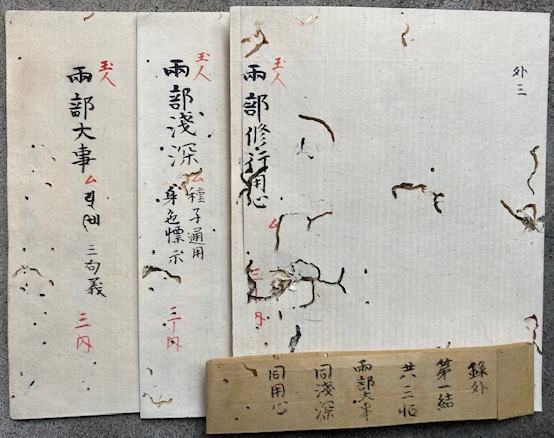 外三
玉人
兩部修行用心
ム
三ノ内
玉人
兩部淺深
ム
種子通用
身色 示
三ノ内
玉人
兩部大事
ム
三句義
三ノ内
錄外
第一結
共三帖
兩部大事
同淺深
同用心